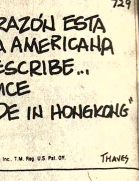 729
RAZÓN ESTA
A AMERICANA
ESCRIBE...
NCE
DE IN HONGKONG"
Inc. T.M. Reg. U.S. Pat. Off.
THAVES